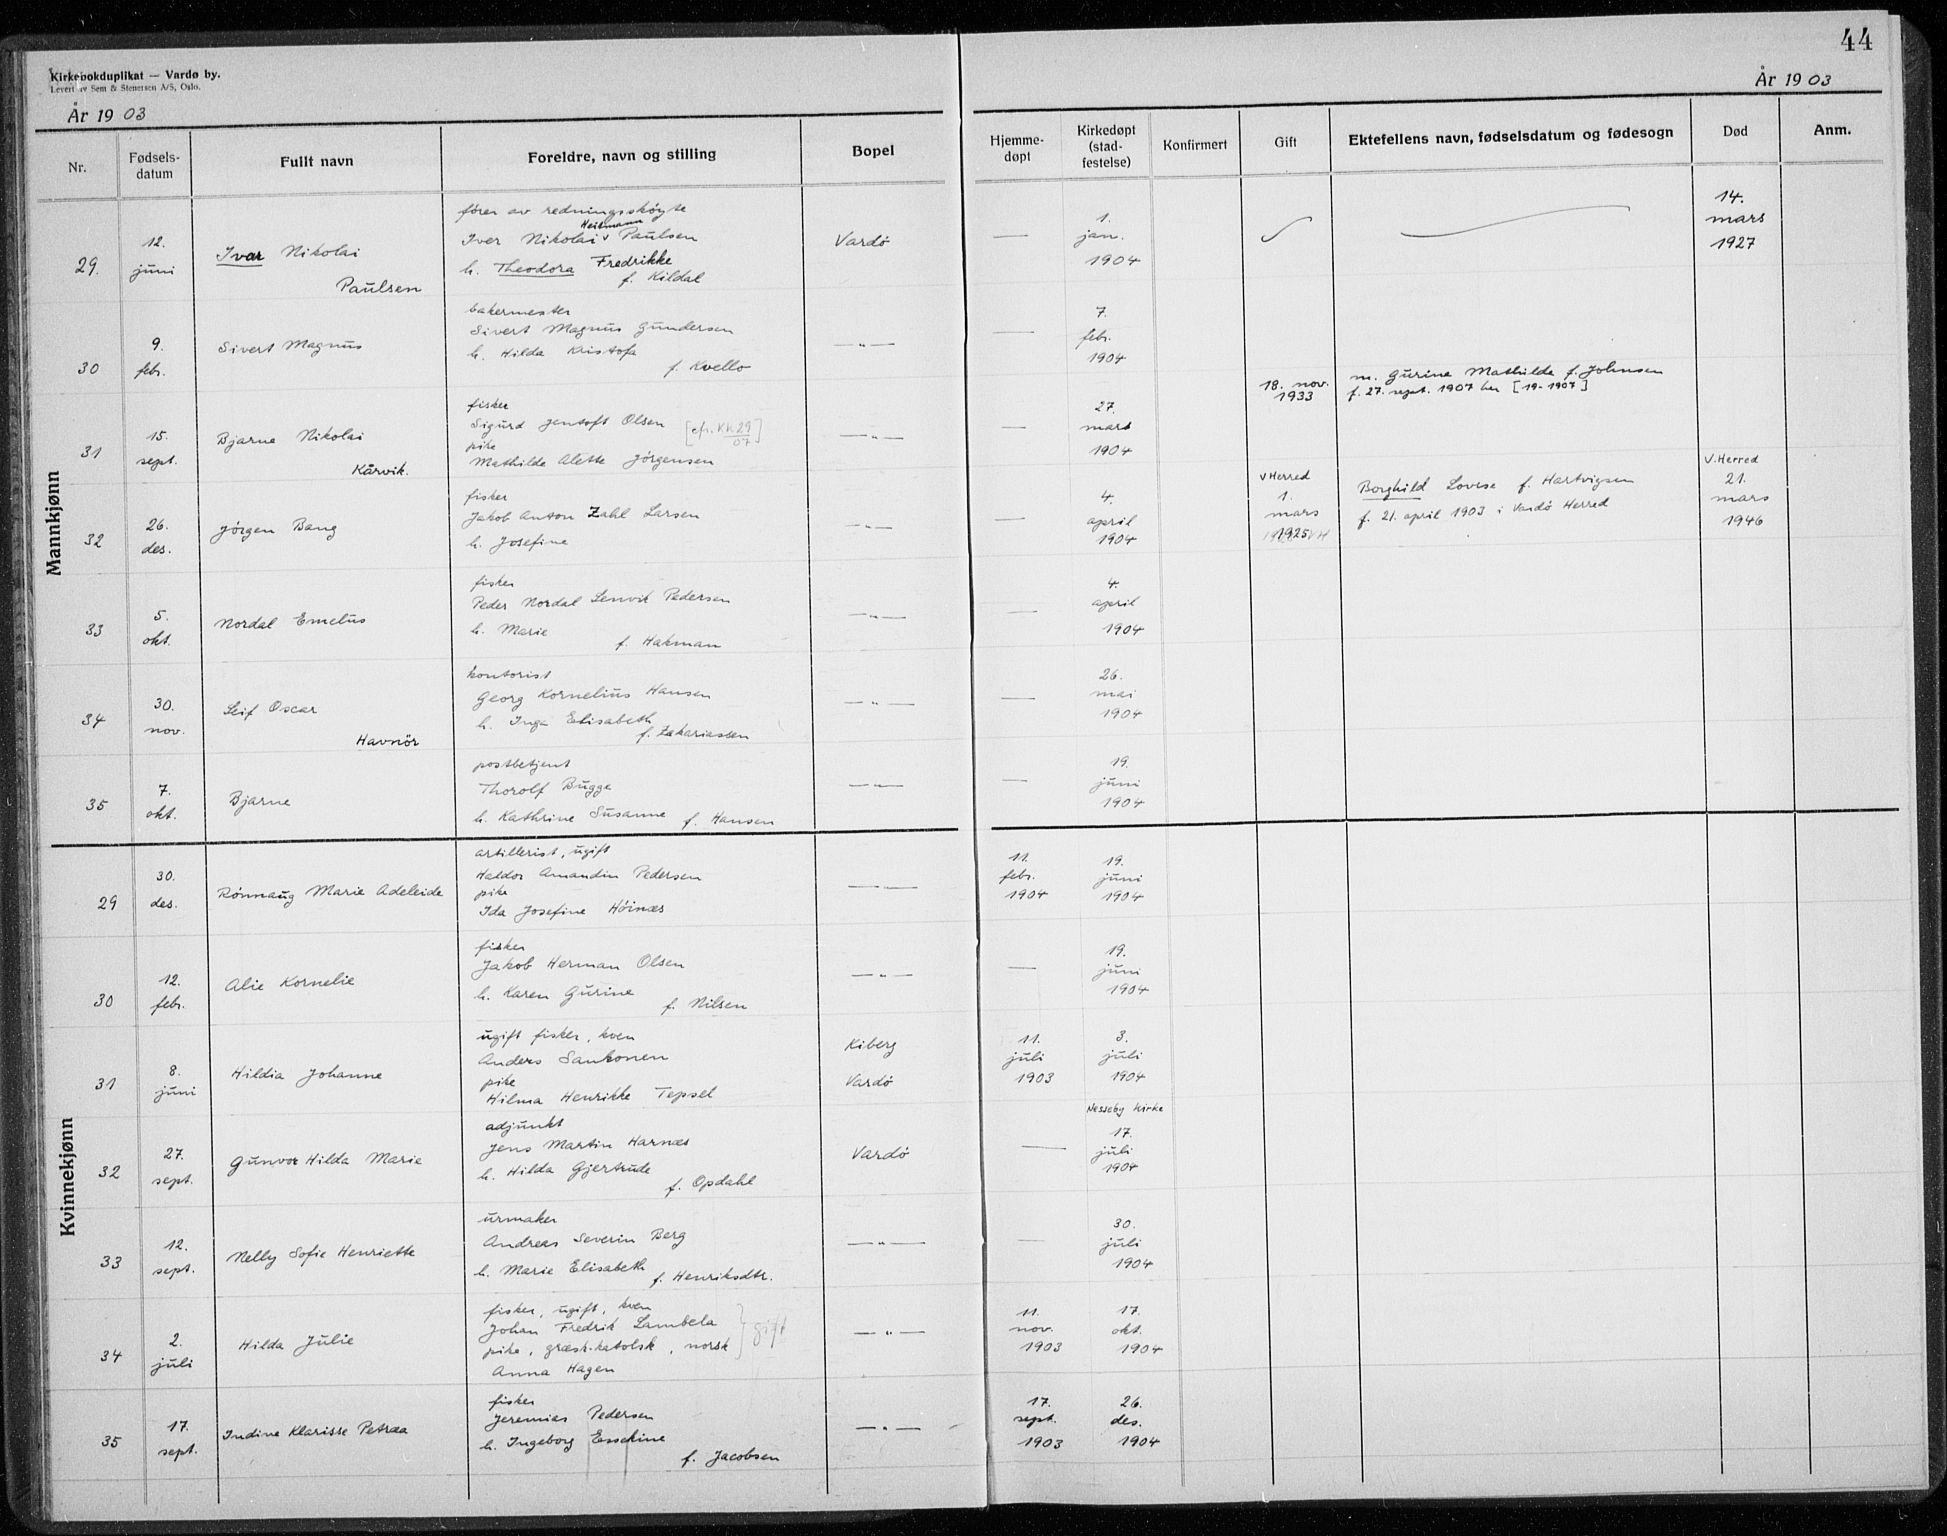 44
Kirkebokduplikat — Vardø by.
Levert av Sem & Stenersen A/S, Oslo.
År 1903
År 1903
Nr.
Fødsels-
datum
Fullt navn
Foreldre, navn og stilling
Bopel
Hjemme-
døpt
Kirkedøpt
(stad-
festelse)
Konfirmert
Gift
Ektefellens navn, fødselsdatum og fødesogn
Død
Anm.
Mannkjønn
29.
12.
juni
Ivar Nikolai
Paulsen
fører av redningsskøyte
Heitmann
Iver Nikolai v Paulsen
h. Theodora Fredrikke
f. Kildal
Vardø
—
1.
jan.
1904
14.
mars
1927
30
9.
febr.
Sivert Magnus
bakermester
Sivert Magnus Gundersen
h. Hilda Kristofa
f. Kvello
— " —
—
7.
febr.
1904
31
15.
sept.
Bjarne Nikolai
Kårvik.
fisker
Sigurd Jentoft Olsen [cfr. KK 29/07]
pike
Mathilde Alette Jørgensen
— " —
—
27.
mars
1904
18. nov.
1933
m. Gurine Mathilde f. Johnsen
f. 27. sept. 1907 her [19-1907]
32
26.
des.
Jørgen Bang
fisker
Jakob Anton Zahl Larsen
h. Josefine
— " —
—
4.
april
1904
V Herred
1.
mars
1925
Borghild Lovise f. Hartvigsen
f. 21. april 1903 i Vardø Herred
V. Herred
21.
mars
1946
33
5.
okt.
Nordal Emelus
fisker
Peder Nordal Lenvik Pedersen
h. Marie
f. Hakman
— " —
—
4.
april
1904
34
30.
nov.
Leif Oscar
Havnör
kontorist
Georg Kornelius Hansen
h. Inga Elisabeth
f. Zakariassen
— " —
—
26.
mai
1904
35
7.
okt.
Bjarne
postbetjent
Thorolf Bugge
h. Kathrine Susanne f. Hansen
— " —
—
19.
juni
1904
Kvinnekjønn
29
30.
des.
Rønnaug Marie Adeleide
artillerist, ugift
Haldor Amandin Pedersen
pike
Ida Josefine Höinæs
— " —
11.
febr.
1904
19.
juni
1904
30
12.
febr.
Alie Kornelie
fisker
Jakob Herman Olsen
h. Karen Gurine
f. Nilsen
— " —
—
19.
juni
1904
31
8.
juni
Hildia Johanne
ugift fisker, kven
Anders Sankonen
pike
Hilma Henrikke Tepsel
Kiberg
Vardø
11.
juli
1903
3.
juli
1904
32
27.
sept.
Gunvor Hilda Marie
adjunkt
Jens Martin Harnæs
h. Hilda Gjertrude
f. Opdahl
Vardø
—
Nesseby kirke
17.
juli
1904
33
12.
sept.
Nelly Sofie Henriette
urmaker
Andreas Severin Berg
h. Marie Elisabeth
f. Henriksdtr.
— " —
—
30.
juli
1904
34
2.
juli
Hilda Julie
fisker, ugift, kven
Johan Fredrik Lambela
pike, græsk-katolsk, norsk
Anna Hagen
gift
— " —
11.
nov.
1903
17.
okt.
1904
35
17.
sept.
Indine Klarisse Petræa
fisker
Jeremias Pedersen
h. Ingeborg Essekine
f. Jacobsen
— " —
17.
sept.
1903
26.
des.
1904